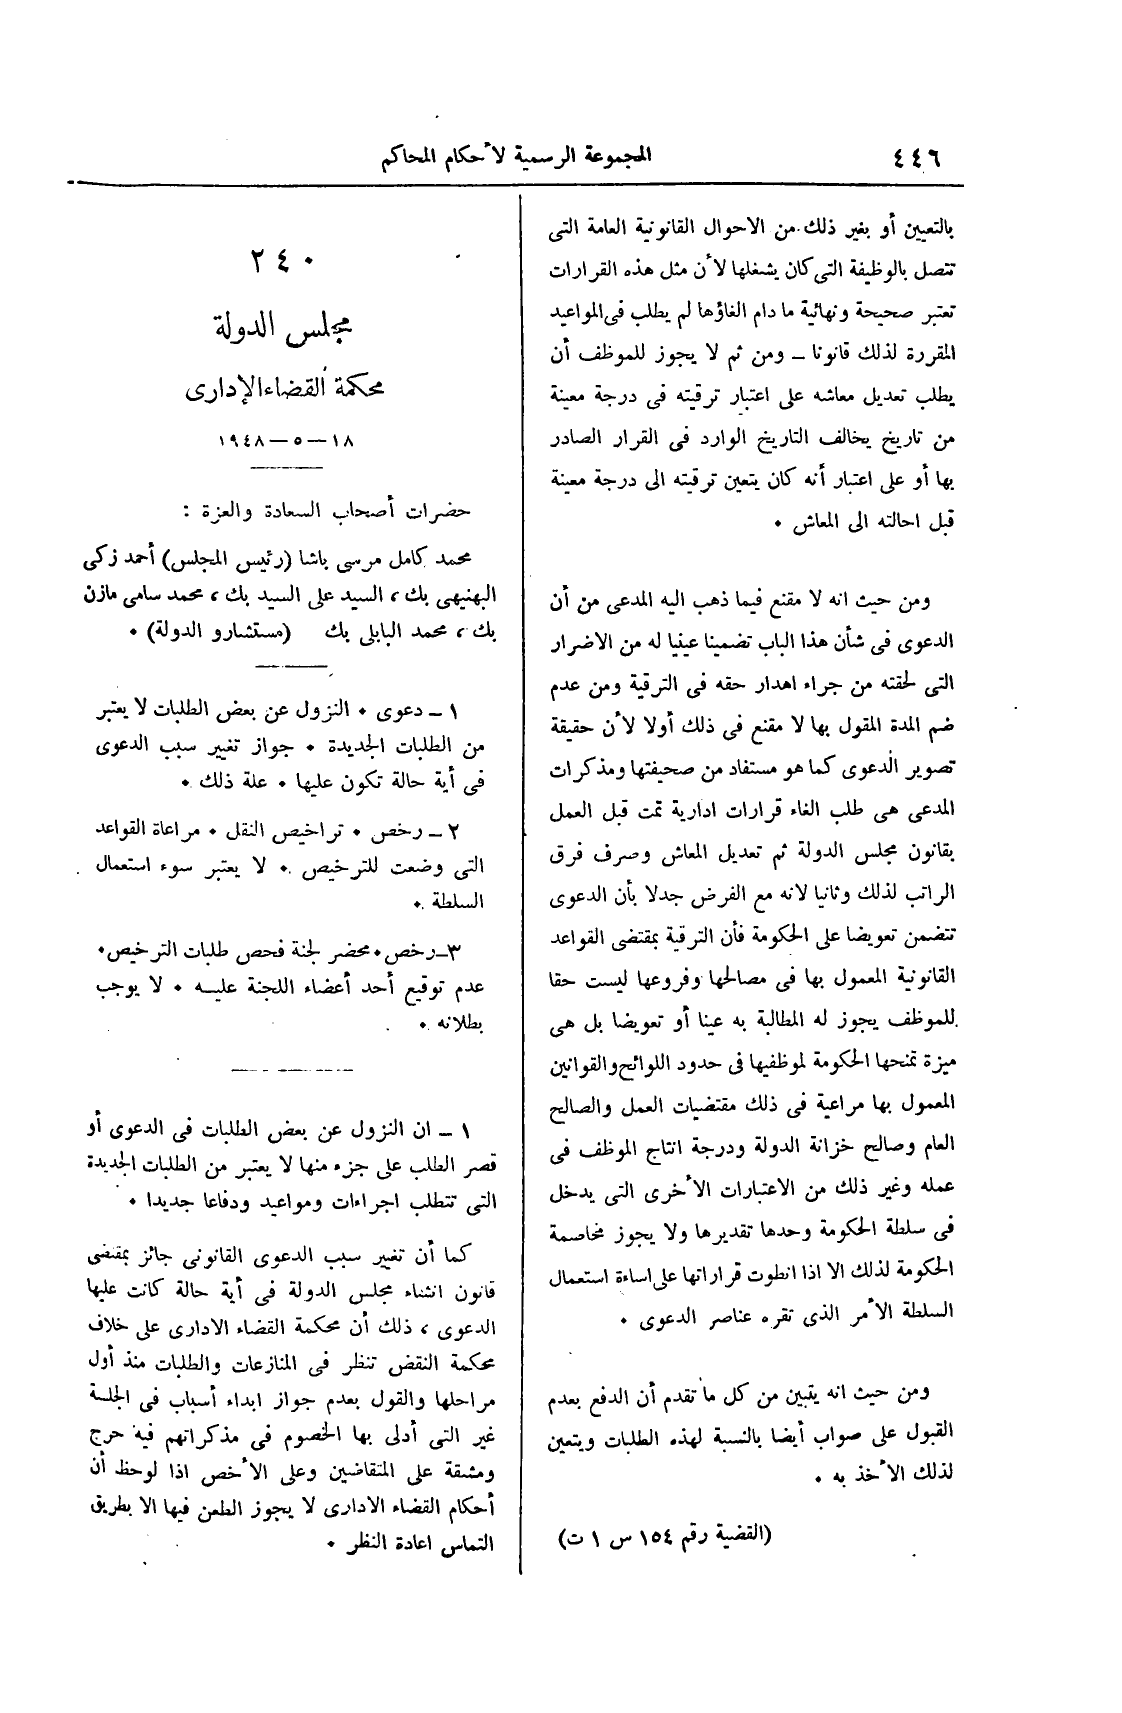 ٤٤٦
المجموعة الرسمية لأحكام المحاكم
بالتعيين أو بغير ذلك من الاحوال القانونية العامة التى
تتصل بالوظيفة التى كان يشغلها لأن مثل هذه القرارات
تعتبر صحيحة ونهائية ما دام الغاؤها لم يطلب فى المواعيد
المقررة لذلك قانونا ــ ومن ثم لا يجوز للموظف أن
يطلب تعديل معاشه على اعتبار ترقيته فى درجة معينة
من تاريخ يخالف التاريخ الوارد فى القرار الصادر
بها أو على اعتبار أنه كان يتعين ترقيته الى درجة معينة
قبل احالته الى المعاش .
ومن حيث انه لا مقنع فيما ذهب اليه المدعى من أن
الدعوى فى شأن هذا الباب تضمينا عينيا له من الاضرار
التى لحقته من جراء اهدار حقه فى الترقية ومن عدم
ضم المدة المقول بها لا مقنع فى ذلك أولا لأن حقيقة
تصوير الدعوى كما هو مستفاد من صحيفتها ومذكرات
المدعى هى طلب الغاء قرارات ادارية تمت قبل العمل
بقانون مجلس الدولة ثم تعديل المعاش وصرف فرق
الراتب لذلك وثانيا لانه مع الفرض جدلا بأن الدعوى
تتضمن تعويضا على الحكومة فأن الترقية بمقتضى القواعد
القانونية المعمول بها فى مصالحها وفروعها ليست حقا
للموظف يجوز له المطالبة به عينا أو تعويضا بل هى
ميزة تمنحها الحكومة لموظفيها فى حدود اللوائح والقوانين
المعمول بها مراعية فى ذلك مقتضيات العمل والصالح
العام وصالح خزانة الدولة ودرجة انتاج الموظف فى
عمله وغير ذلك من الاعتبارات الأخرى التى يدخل
فى سلطة الحكومة وحدها تقديرها ولا يجوز مخاصمة
الحكومة لذلك الا اذا انطوت قراراتها على اساءة استعمال
السلطة الأمر الذى تقره عناصر الدعوى .
ومن حيث انه يتبين من كل ما تقدم أن الدفع بعدم
القبول على صواب أيضا بالنسبة لهذه الطلبات ويتعين
لذلك الأخذ به .
(القضية رقم ١٥٤ س ١ ت)
٢٤٠
مجلس الدولة
محكمة القضاء الإدارى
١٨ــ٥ــ١٩٤٨
حضرات أصحاب السعادة والعزة :
محمد كامل مرسى باشا (رئيس المجلس) أحمد زكى
البهنيهى بك ، السيد على السيد بك ، محمد سامى مازن
بك ، محمد البابلى بك (مستشارو الدولة) .
١ ــ دعوى . النزول عن بعض الطلبات لا يعتبر
من الطلبات الجديدة . جواز تغيير سبب الدعوى
فى أية حالة تكون عليها . علة ذلك .
٢ ــ رخص . تراخيص النقل . مراعاة القواعد
التى وضعت للترخيص . لا يعتبر سوء استعمال
السلطة .
٣ــ رخص . محضر لجنة فحص طلبات الترخيص .
عدم توقيع أحد أعضاء اللجنة عليه . لا يوجب
بطلانه .
١ ــ ان النزول عن بعض الطلبات فى الدعوى أو
قصر الطلب على جزء منها لا يعتبر من الطلبات الجديدة
التى تتطلب اجراءات ومواعيد ودفاعا جديدا .
كما أن تغيير سبب الدعوى القانونى جائز بمقتضى
قانون انشاء مجلس الدولة فى أية حالة كانت عليها
الدعوى ، ذلك أن محكمة القضاء الادارى على خلاف
محكمة النقض تنظر فى المنازعات والطلبات منذ أول
مراحلها والقول بعدم جواز ابداء أسباب فى الجلسة
غير التى أدلى بها الخصوم فى مذكراتهم فيه حرج
ومشقة على المتقاضين وعلى الأخص اذا لوحظ أن
أحكام القضاء الادارى لا يجوز الطعن فيها الا بطريق
التماس اعادة النظر .